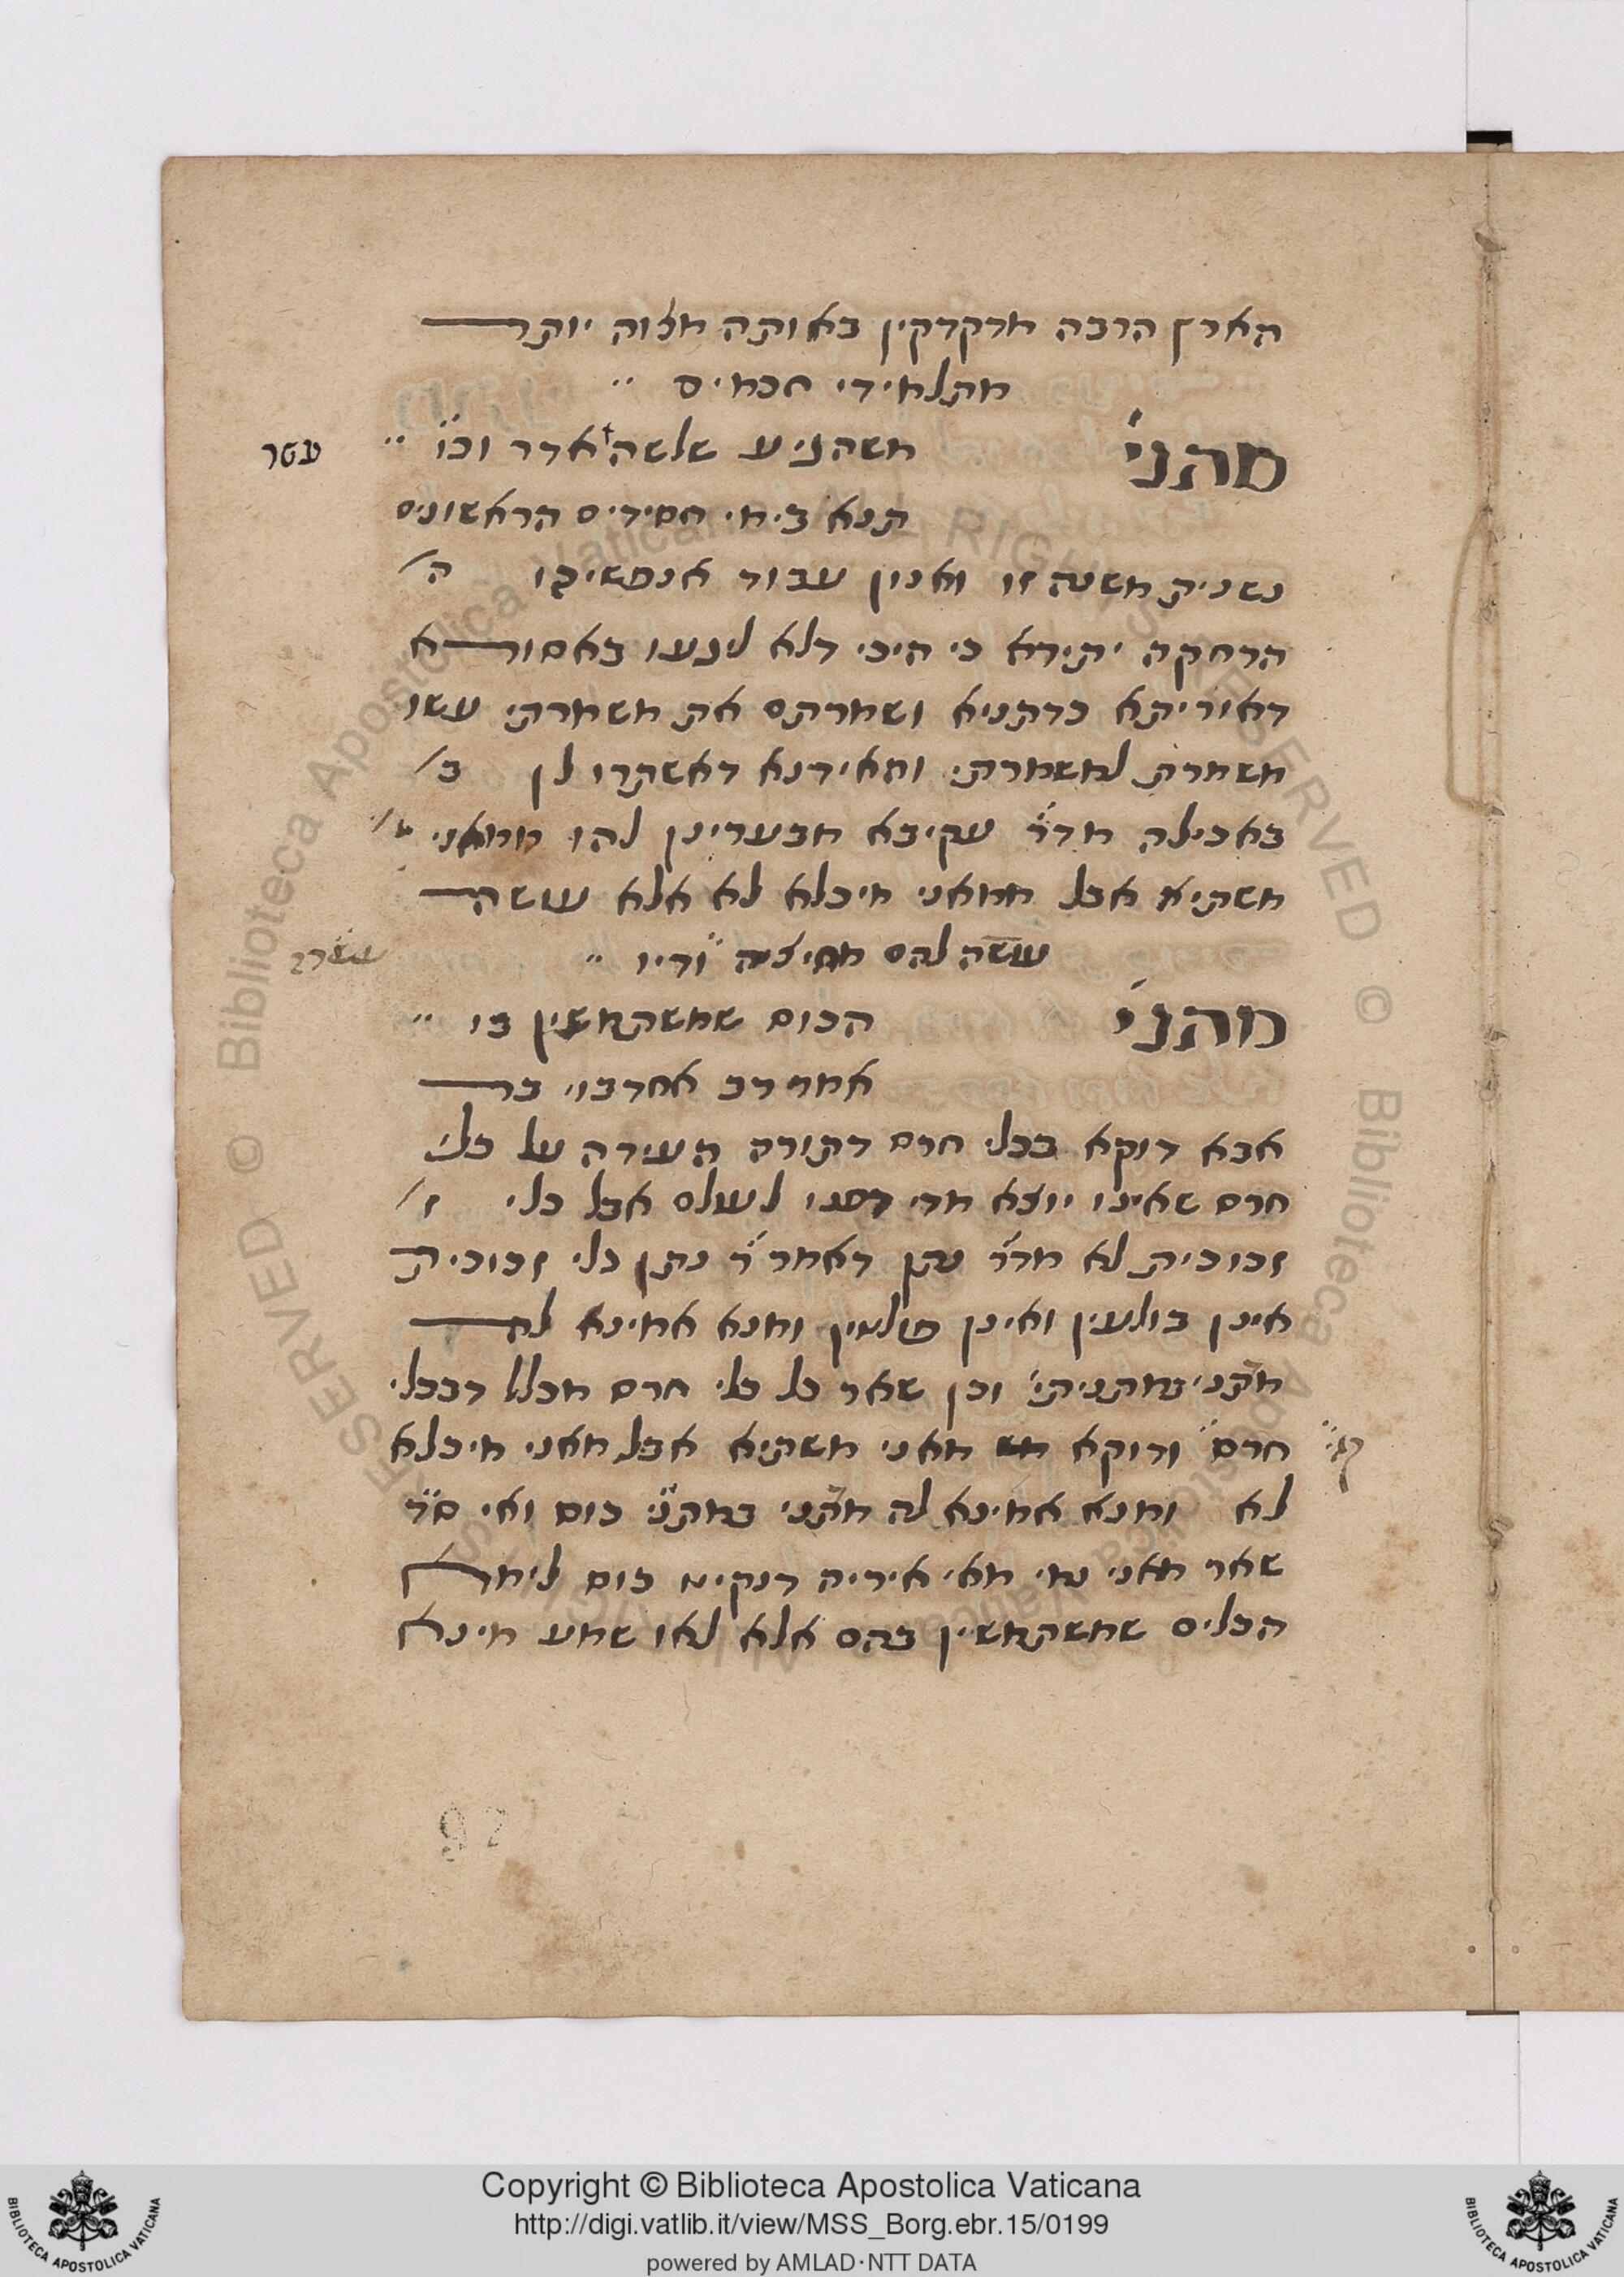 הארץ הרבה מדקדקין באותה מצוה יותר
מתלמידי חכמים
מתני' משהגיע שלשה אדר וכו'
עטר
תנא בימי חסידים הראשונים
נשנית משנה זו ואנון עבוד אנפשיהו ה
הרחקה יתירא כי היכי דלא ליגעו באסורא
דאוריתא כדתניא ושמרתם את משמרתי עשו
משמרת למשמרתי והאידנא דאשתרו לן ב
באכילה מדר' עקיבא מבערינן להו ממאני
משתיא אבל ממאני מיכלא לא אלא עושה
עושה להם מחיצה ודיו
מתני' הכוס שמשתמשין בו
אמר רב אחדבוי בר
אבא דוקא בכלי חרס דתורה העידה על כלי
חרס שאינו יוצא מדי דפנו לעולם אבל כלי ז
זכוכית לא מדר' נתן דאמר ר' נתן כלי זכוכית
אינן בולעין ואינן פולטין ומנא אמינא לה
מתני במתניתי' וכן שאר כל כלי חרס מכלל דבכלי
חרס ודוקא מש מאני משתיא אבל מאני מיכלא
לא ומנא אמינא לה מתני במתני' כוס ואי ס"ד
שאר מאני נמי מאי איריה דנקיט כוס לימא
הכלים שמשתמשין בהם אלא לאו שמע מינא
92
Copyright © Biblioteca Apostolica Vaticana
http://digi.vatlib.it/view/MSS_Borg.ebr.15/0199
powered by AMLAD·NTT DATA